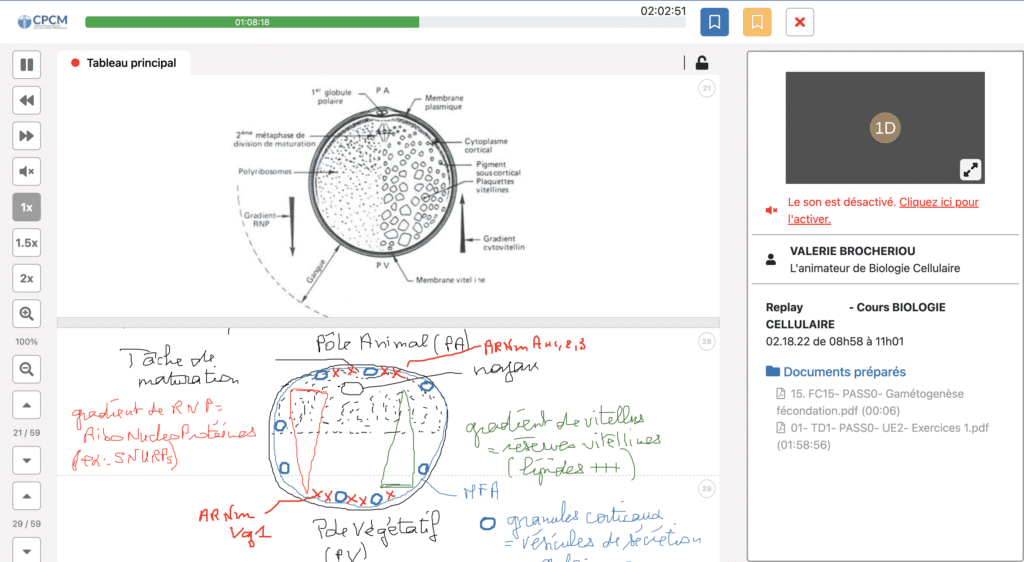 CPCM
01:08:18
02:02:51
Tableau principal
21
1er globule polaire
P A
Membrane plasmique
2ème métaphase de division de maturation
Cytoplasme cortical
Polyribosomes
Pigment sous cortical
Plaquettes vitellines
Gradient RNP
Gradient cytovitellin
Gangue
P V
Membrane vitelline
1x
1.5x
2x
100%
21 / 59
29 / 59
28
Pôle Animal (PA)
ARNm An1,2,3
Tâche de
maturation
noyau
gradient de RNP =
RiboNucléoProtéines
(ex: SNURPs)
gradient de vitellus
= réserves vitellines
(lipides +++)
29
ARNm
Vg1
MFA
Pôle Végétatif
(PV)
granules corticaux
= vésicules de sécrétion
1D
Le son est désactivé. Cliquez ici pour
l'activer.
VALERIE BROCHERIOU
L'animateur de Biologie Cellulaire
Replay - Cours BIOLOGIE
CELLULAIRE
02.18.22 de 08h58 à 11h01
Documents préparés
15. FC15- PASS0- Gamétogenèse
fécondation.pdf (00:06)
01- TD1- PASS0- UE2- Exercices 1.pdf
(01:58:56)